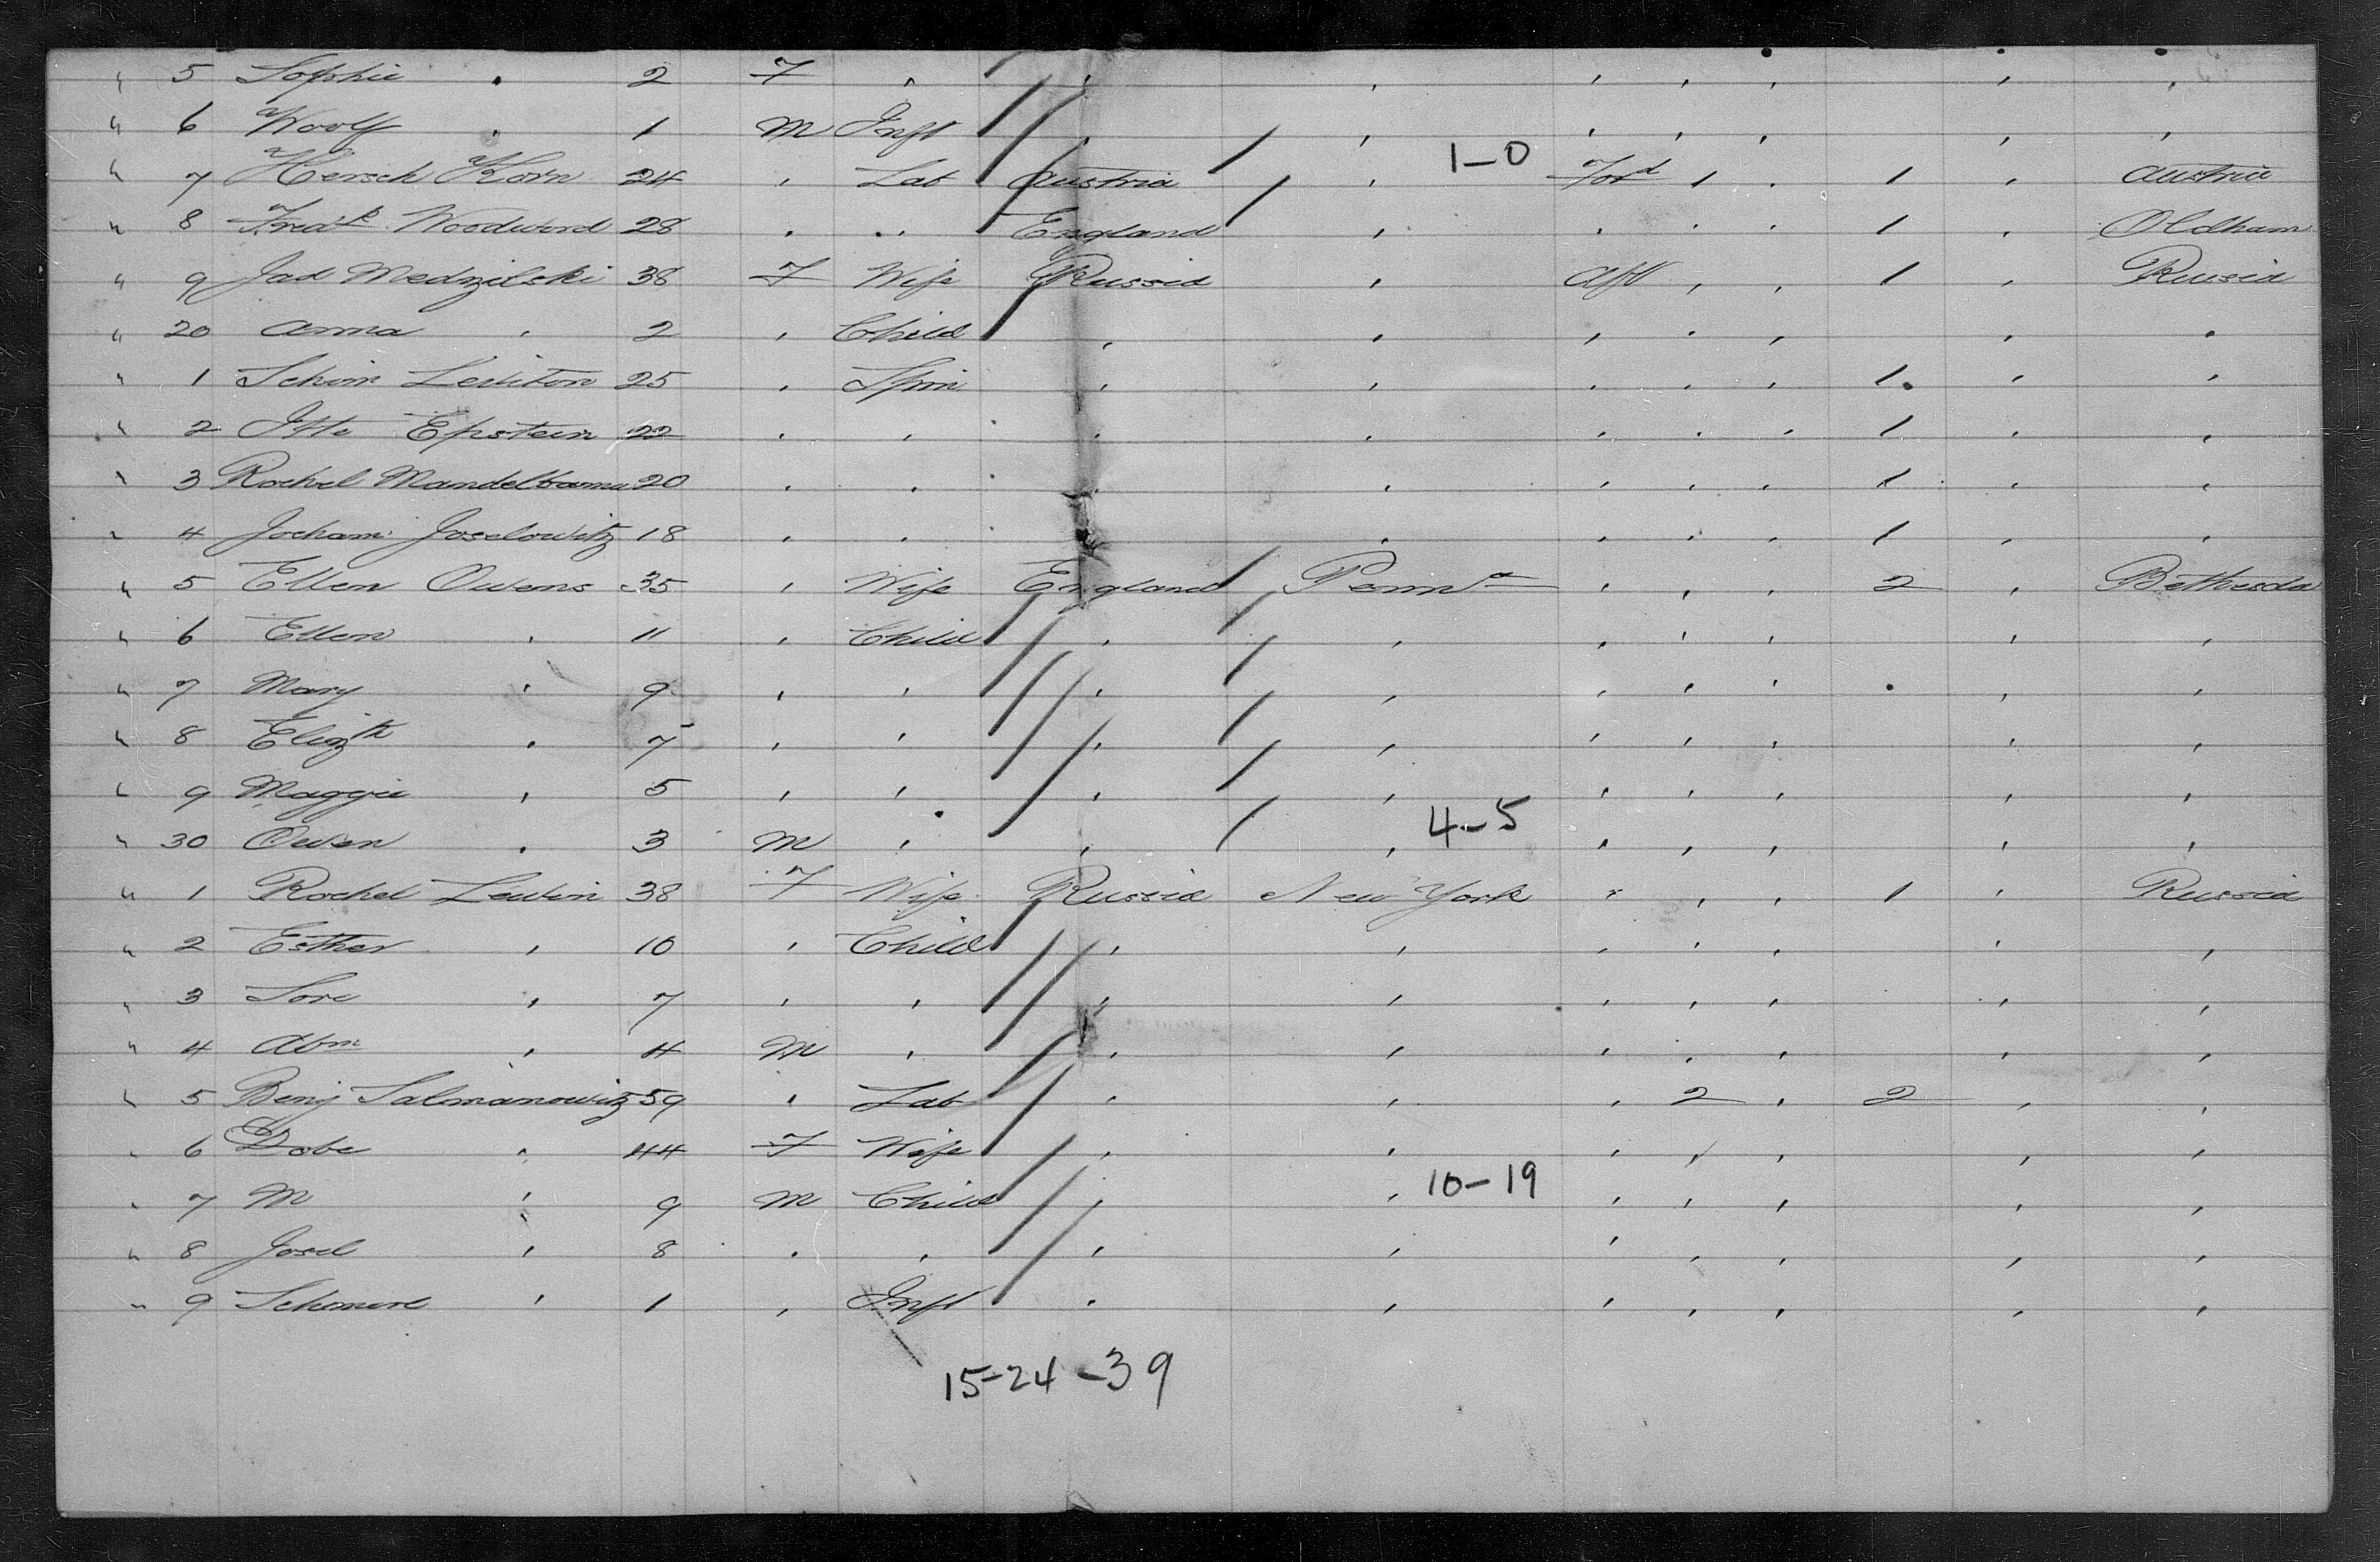 " 5 Sophie " 2 F " " " " " " " "
" 6 Woolf " 1 M Inft " " " " " " "
" 7 Hersch Korn 24 " Lab Austria " 1-0 Ford 1 " 1 " Austria
" 8 Fredk Woodword 28 " " England " " " " 1 " Oldham
" 9 Jad Medzilski 38 F Wife Russia " Aft " " 1 " Russia
" 20 Anna " 2 " Child " " " " " " "
" 1 Schim Lewiton 25 " Spin " " " " " 1 " "
" 2 Itte Epstein 22 " " " " " " " 1 " "
" 3 Rochel Mandelbama 20 " " " " " " " 1 " "
" 4 Jocham Joselowitz 18 " " " " " " " 1 " "
" 5 Ellen Owens 35 " Wife England Penna " " " 2 " Bethesda
" 6 Ellen " 11 " Child " " " " " " "
" 7 Mary " 9 " " " " " " " " "
" 8 Elizth " 7 " " " " " " " " "
" 9 Maggie " 5 " " " " " " " " "
" 30 Owen " 3 M " " " 4-5 " " " " "
" 1 Rochel Lewin 38 F Wife Russia New York " " " 1 " Russia
" 2 Esther " 10 " Child " " " " " " "
" 3 Sore " 7 " " " " " " " " "
" 4 Abm " 4 M " " " " " " " "
" 5 Benj Salmanowitz 59 " Lab " " " 2 " 2 " "
" 6 Dobe " 44 F Wife " " " " " " "
" 7 M " 9 M Child " " 10-19 " " " " "
" 8 Josel " 8 " " " " " " " " "
" 9 Schmere " 1 " Inft " " " " " " "
15-24-39